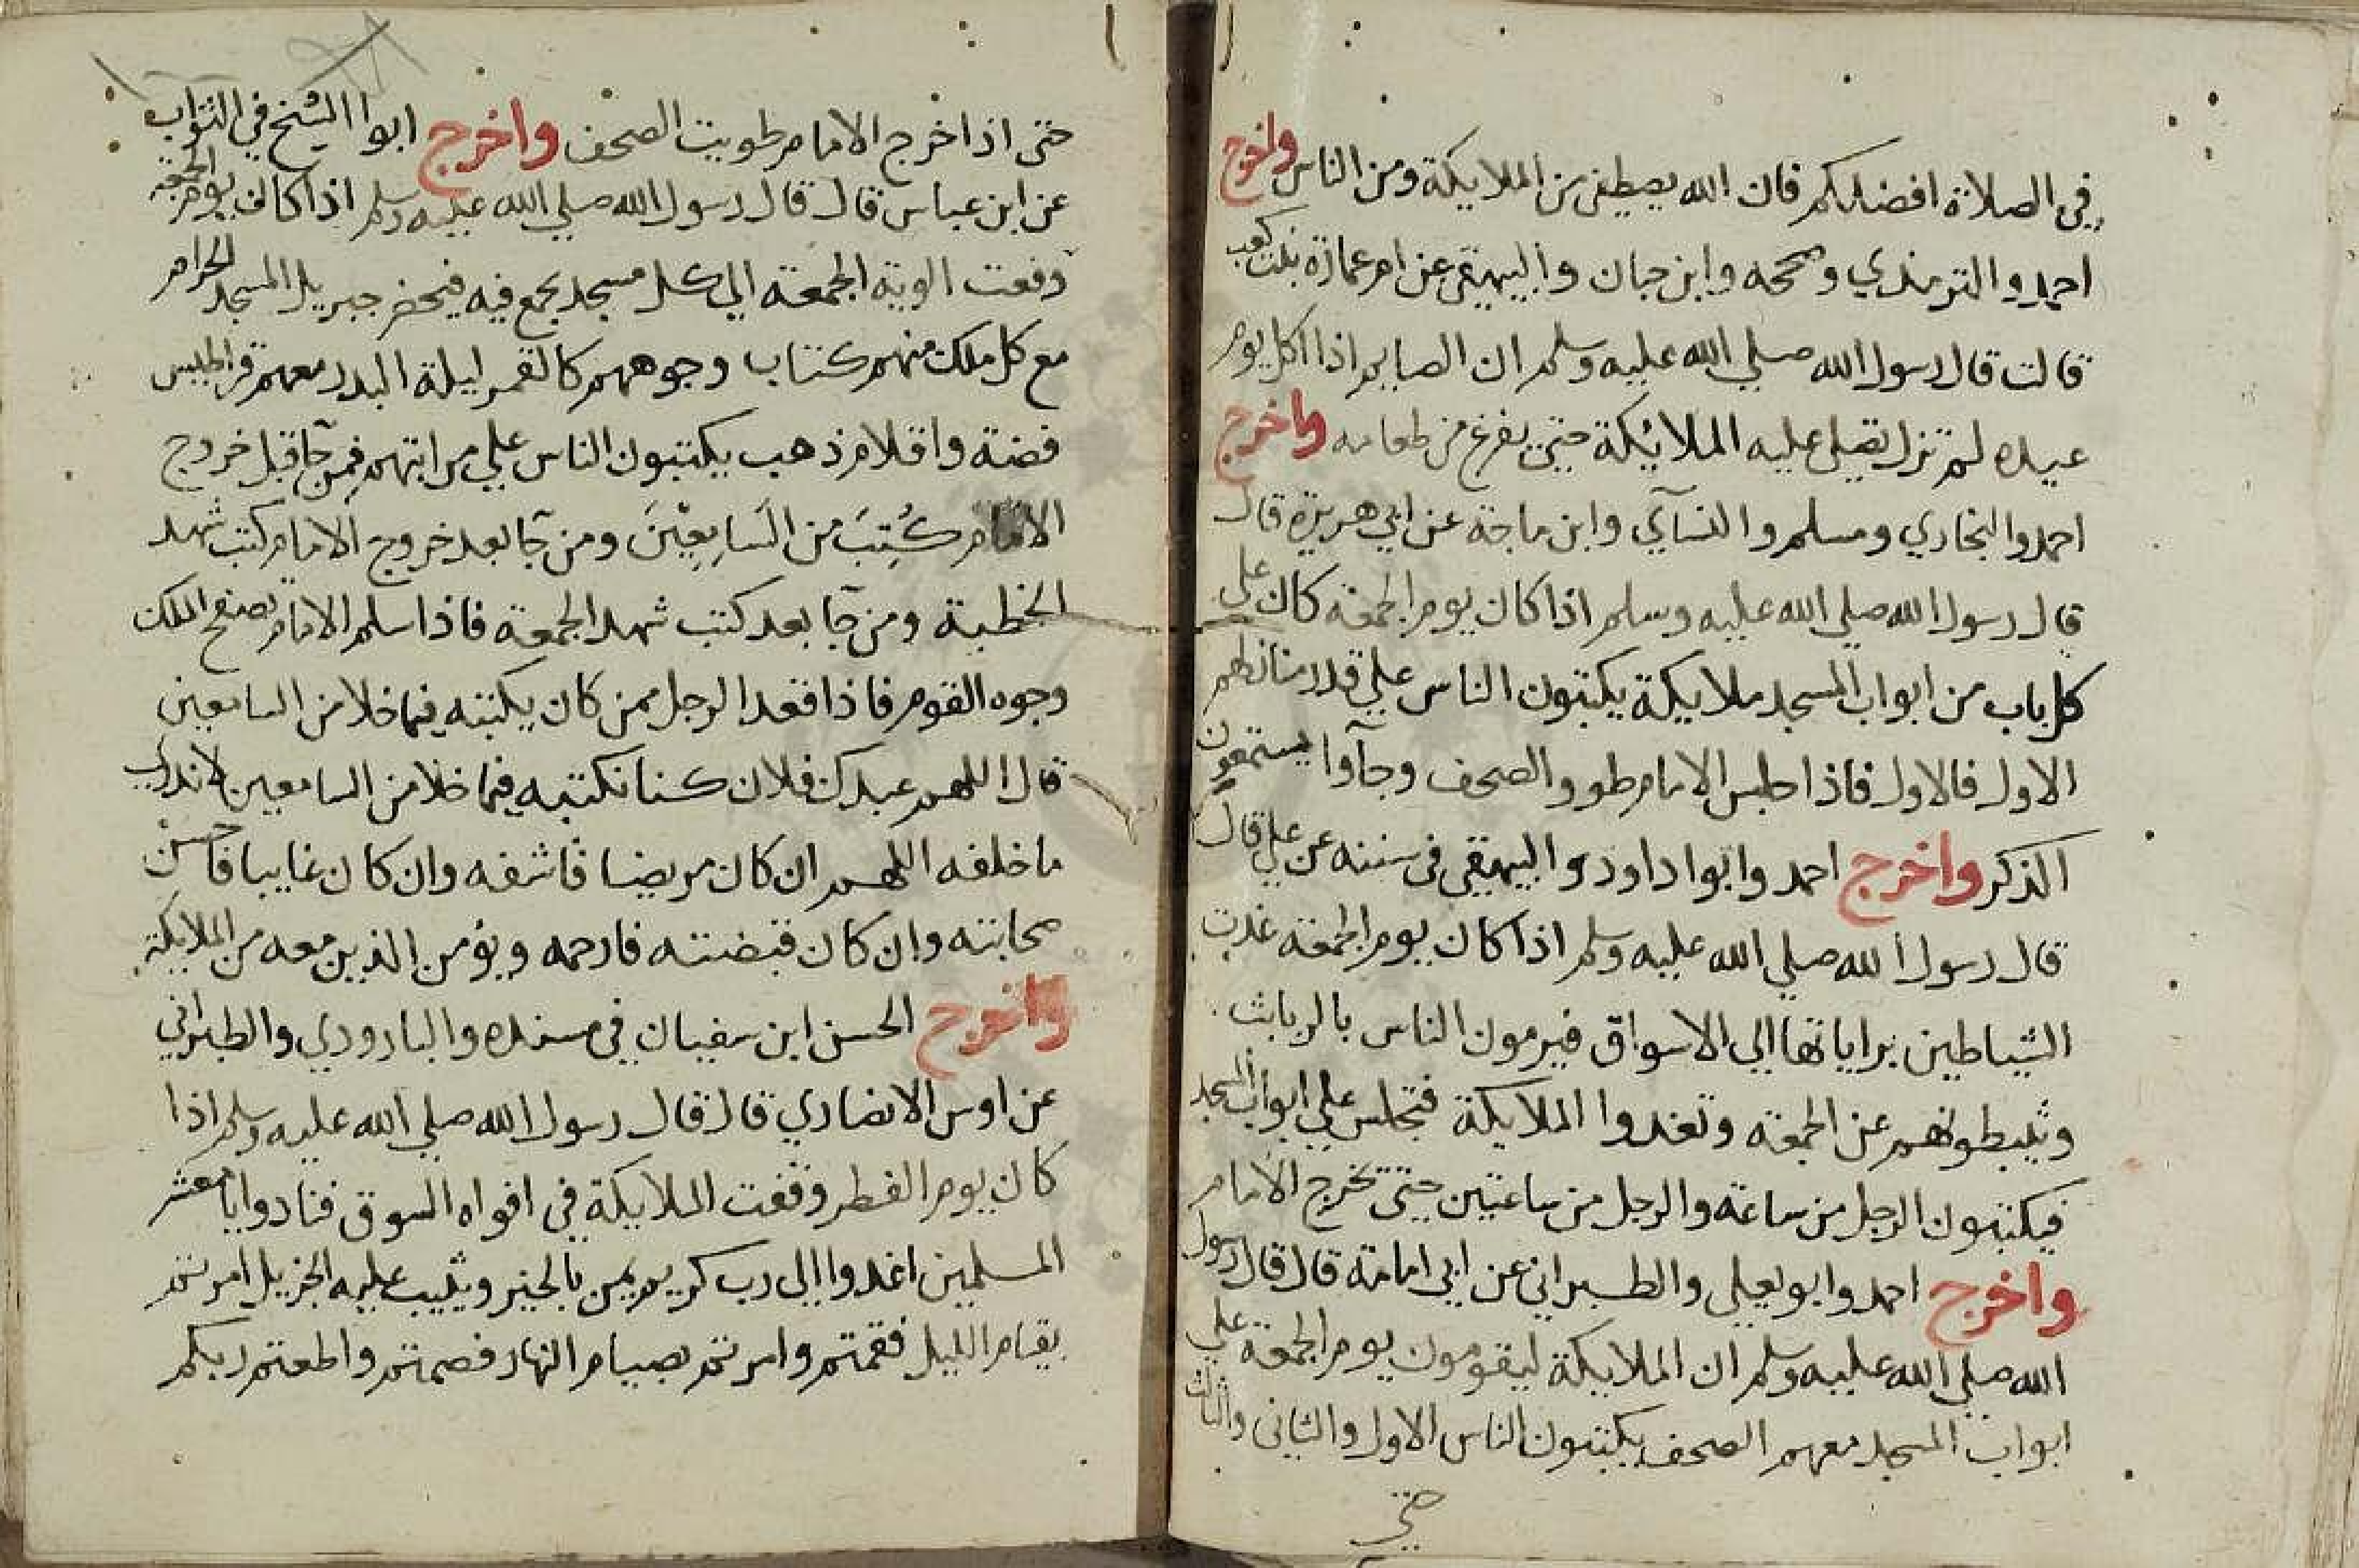 في الصلاة افضلكم فان الله يصطفي من الملايكة ومن الناس واخرج
احمد والترمذي وصححه وابن حبان والبيهقي عن ام عمارة بنت كعب
قالت قال رسول الله صلي الله عليه وسلم ان الصايم اذا اكل يوم
عيده لم تزل تصلي عليه الملائكة حتى يفرغ من طعامه واخرج
احمد والبخاري ومسلم والنسآي وابن ماجة عن ابي هريرة قال
قال رسول الله صلي الله عليه وسلم اذا كان يوم الجمعة كان علي
كل باب من ابواب المسجد ملايكة يكتبون الناس علي قدر منازلهم
الاول فالاول فاذا جلس الامام طووا الصحف وجآوا يستمعون
الذكر واخرج احمد وابوا داود والبيهقي في سننه عن علي قال
قال رسول الله صلي الله عليه وسلم اذا كان يوم الجمعة غدت
الشياطين براياتها الي الاسواق فيرمون الناس بالربائث
وثيبطونهم عن الجمعة وتغدوا الملايكة فتجلس علي ابواب المسجد
فيكتبون الرجل من ساعة والرجل من ساعتين حتى تخرج الامام
واخرج احمد وابو يعلي والطبراني عن ابي امامة قال قال رسول
الله صلي الله عليه وسلم ان الملايكة ليقومون يوم الجمعة علي
ابواب المسجد معهم الصحف يكتبون الناس الاول والثاني والثالث
حتي
حتى اذا خرج الامام طويت الصحف واخرج ابوا الشيخ في الثواب
عن ابن عباس قال قال رسول الله صلي الله عليه وسلم اذا كان يوم الجمعة
دفعت الوية الجمعة الي كل مسجد يجمع فيه فيحضر جبريل المسجد الحرام
مع كل ملك منهم كتاب وجوههم كالقمر ليلة البدر معهم قراطيس
فضة واقلام ذهب يكتبون الناس علي مراتبهم فمن جآ قبل خروج
الامام كُتِبَ من السَابِقِيْنَ ومن جآ بعد خروج الامام كتب شهد
الخطبة ومن جآ بعد كتب شهد الجمعة فاذا سلم الامام تصفح الملك
وجوه القوم فاذا فقد الرجل ممن كان يكتبه فيما خلا من السابقين
قال اللهم عبدك فلان كنا نكتبه فيما خلا من السابقين لا ندري
ما خلفه اللهم ان كان مريضا فاشفه وان كان غايبا فاحسن
صحابته وان كان قبضته فارحمه ويؤمن الذين معه من الملايكة
واخرج الحسن ابن سفيان في مسنده والبارودي والطبراني
عن اوس الانصاري قال قال رسول الله صلي الله عليه وسلم اذا
كان يوم الفطر وقفت الملايكة في افواه السوق فنادوا يا معشر
المسلمين اغدوا الي رب كريم يمن بالخير ويثيب عليه الجزيل امرتم
بقيام الليل فقمتم وامرتم بصيام النهار فصمتم واطعتم ربكم